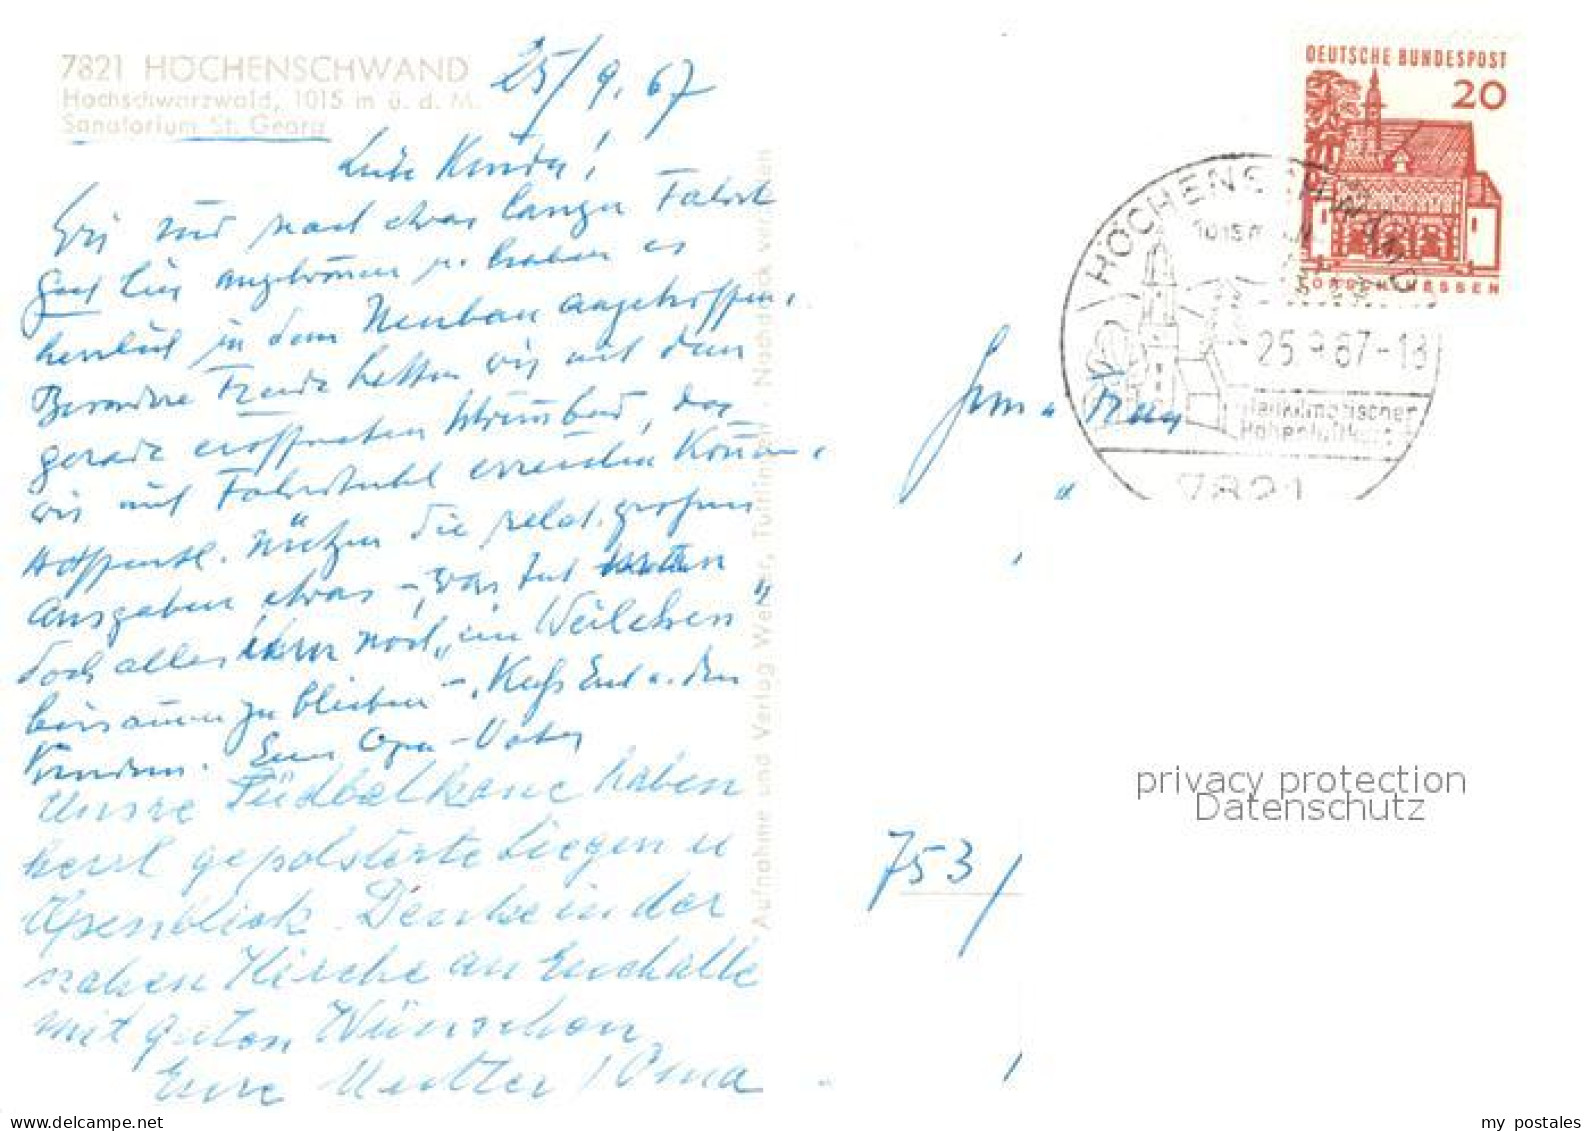 7821 HÖCHENSCHWAND
Hochschwarzwald, 1015 m ü. d. M.
Sanatorium St. Georg
25/9. 67
Liebe Kinder!
Wir sind nach etwas langer Fahrt
gut hier angekommen u. haben es
herrlich in dem Neubau angetroffen.
Besondere Freude hatten wir mit dem
gerade eröffneten Schwimmbad, das
wir mit Fahrstuhl erreichen können.
die relat. grossen
Ausgaben etwas
doch alles noch „ein Weilchen"
beisammen zu bleiben - Kuss Euch u. den
Kindern. Euer Opa-Vater
Unsre Südbalkone haben
herrl gepolsterte Liegen u
Alpenblick. Denke in der
nahen Kirche an Euch alle
mit guten Wünschen
Eure Mutter / Oma
Aufnahme und Verlag Weber, Tuttlingen. Nachdruck verboten
DEUTSCHE BUNDESPOST
20
LORSCH/HESSEN
HÖCHENSCHWAND
25.9.67-18
Heilklimatischer
Höhenluftkurort
7821
753
privacy protection
Datenschutz
my postales